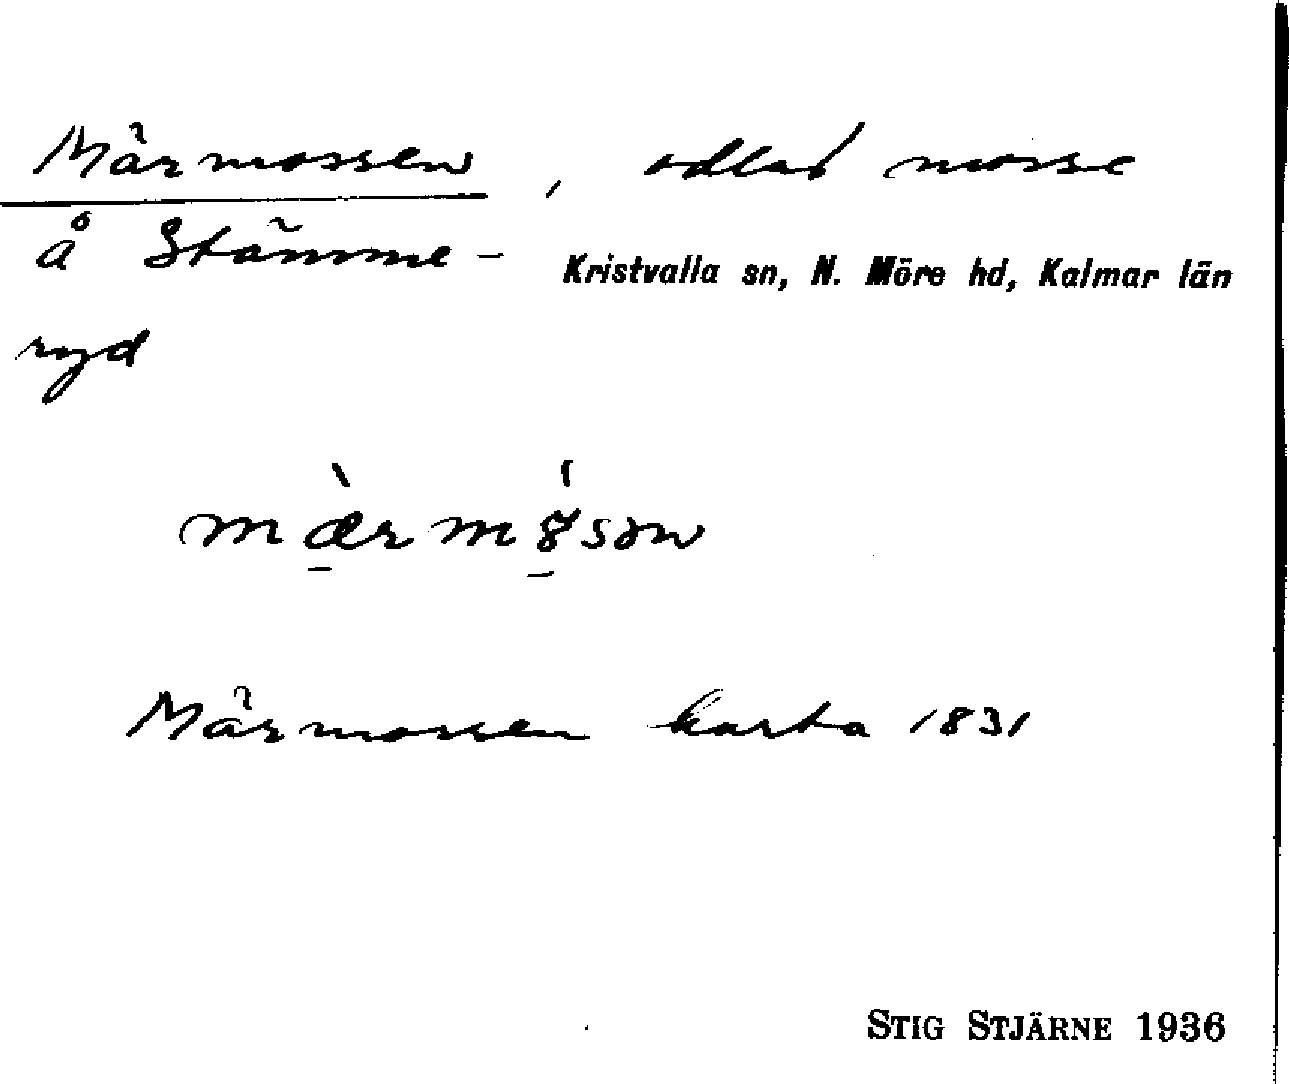 Märmossen, odlad mosse
å Stämme-
Kristvalla sn, N. Möre hd, Kalmar län
ryd
Märmossen karta 1831
STIG STJÄRNE 1936